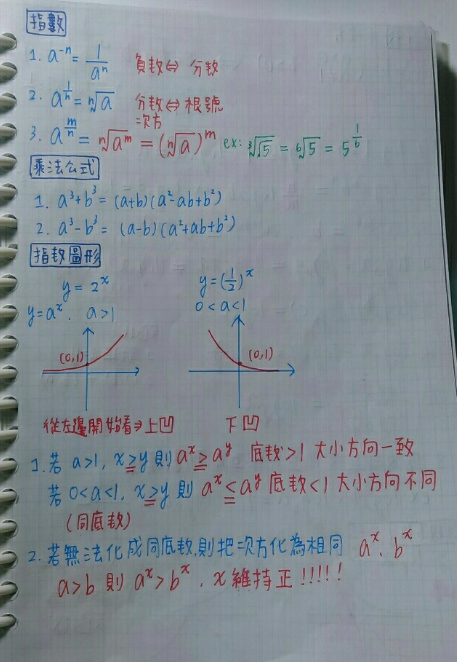 指數
1. a⁻ⁿ = 1/aⁿ 負數⇔分數
2. a^(1/n) = ⁿ√a 分數⇔根號
次方
3. a^(m/n) = ⁿ√(aᵐ) = (ⁿ√a)ᵐ ex: ³√(√5) = ⁶√5 = 5^(1/6)
乘法公式
1. a³+b³ = (a+b)(a²-ab+b²)
2. a³-b³ = (a-b)(a²+ab+b²)
指數圖形
y=2ˣ y=(1/2)ˣ
y=aˣ. a>1 0<a<1
(0,1) (0,1)
從左邊開始看⇒上凹 下凹
1. 若 a>1, x≥y 則 aˣ≥aʸ 底數>1 大小方向一致
若 0<a<1, x≥y 則 aˣ≤aʸ 底數<1 大小方向不同
(同底數)
2. 若無法化成同底數,則把次方化為相同 aˣ. bˣ
a>b 則 aˣ>bˣ . x維持正!!!!!